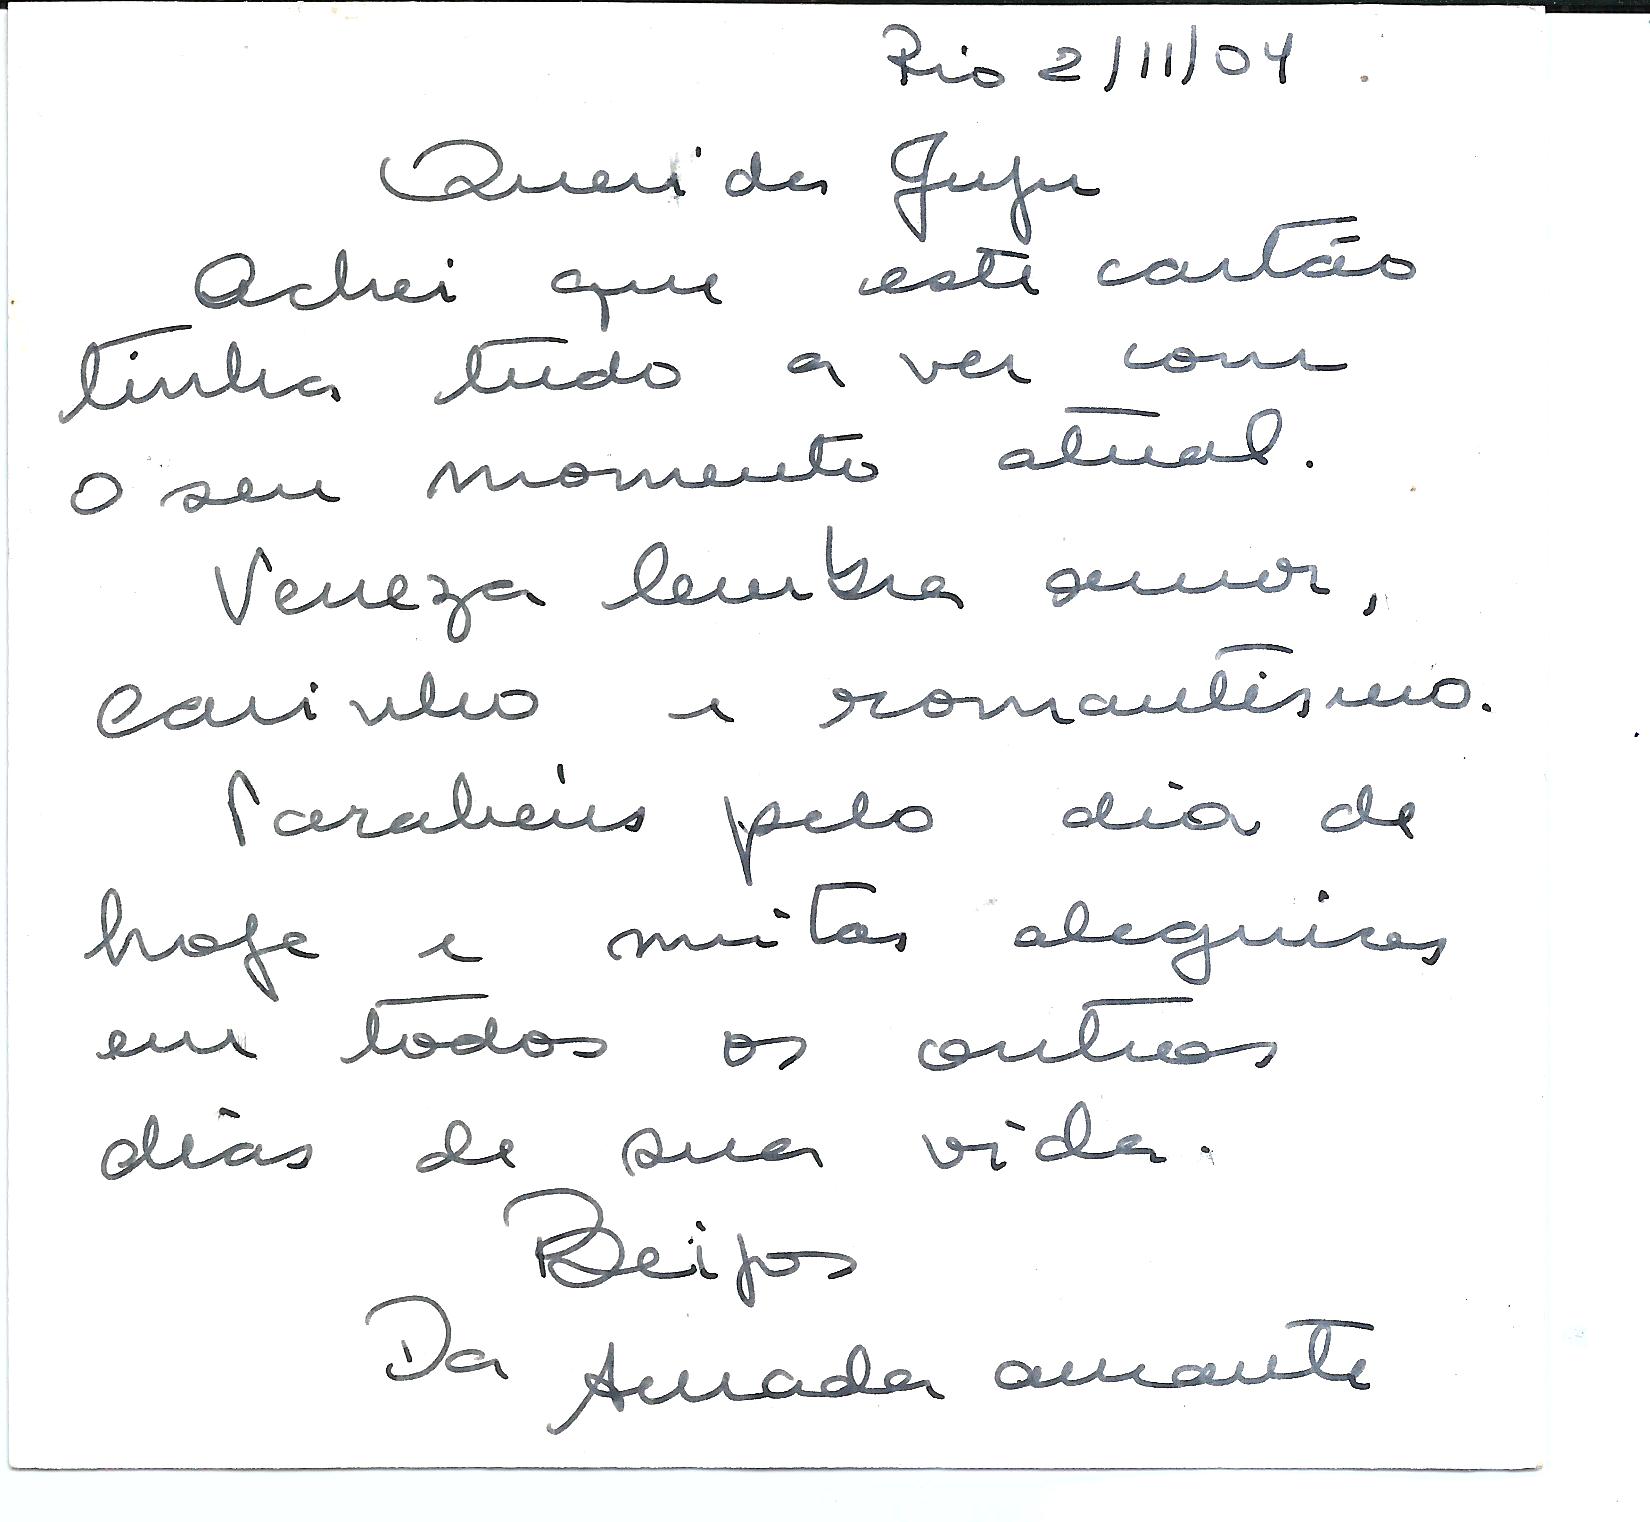 Rio 2/11/04
Querida Juju
Achei que este cartão
tinha tudo a ver com
o seu momento atual.
Veneza lembra amor,
carinho e romantismo.
Parabéns pelo dia de
hoje e muitas alegrias
em todos os outros
dias de sua vida.
Beijos
Da Amada amante